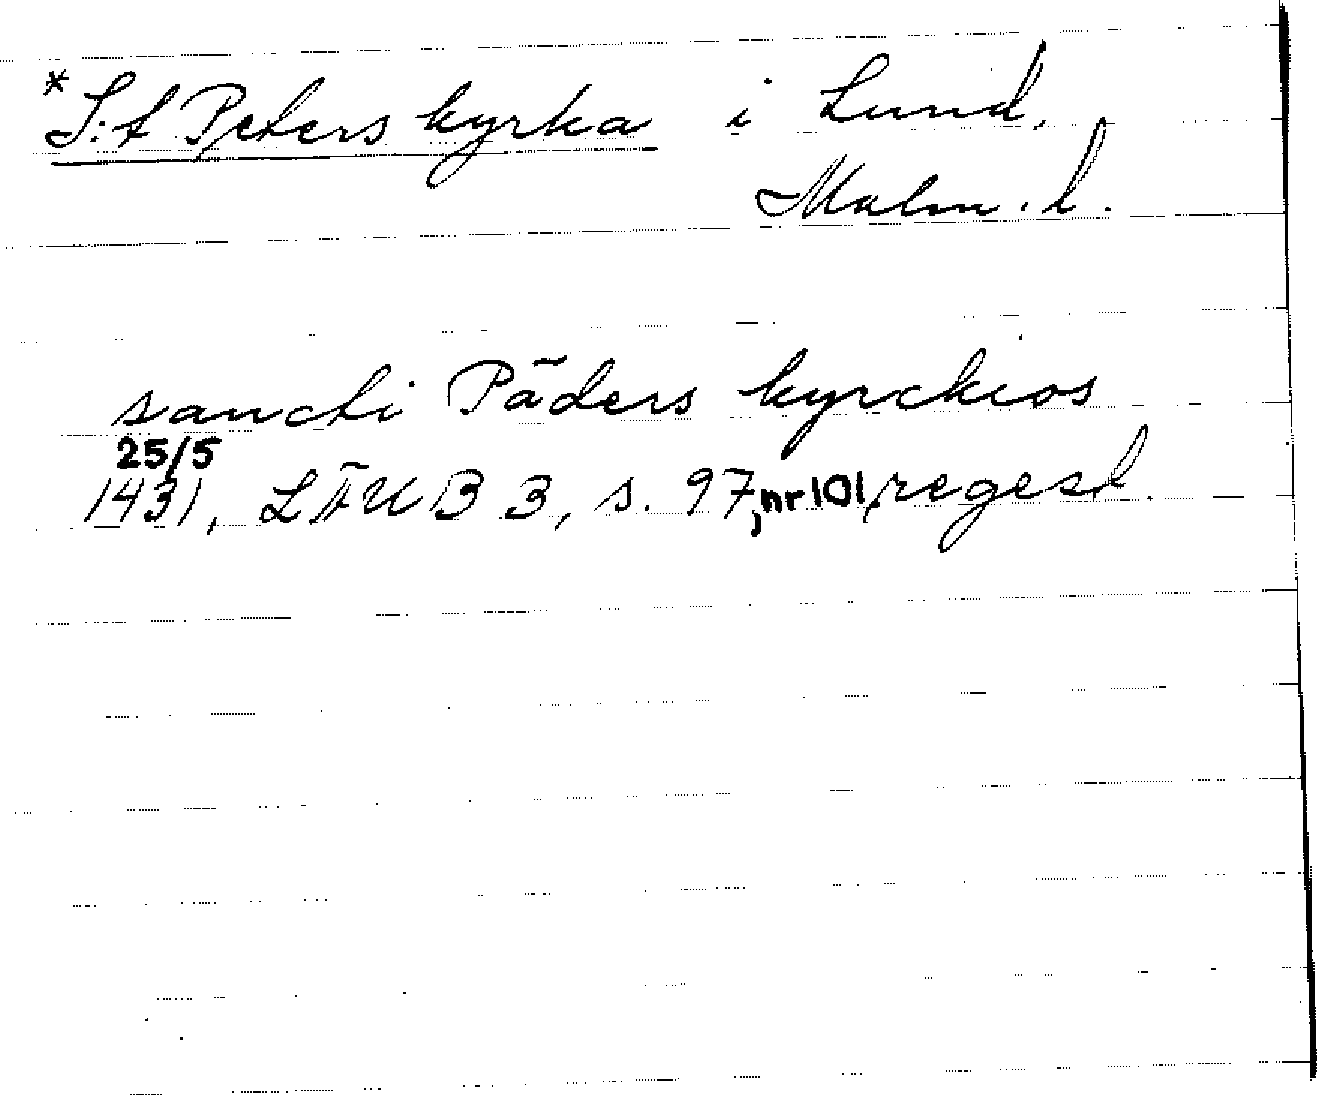 *S:t Peters kyrka i Lund,
Malm. l.
sancti Päders kyrckios
25/5
1431, LÄUB 3, s. 97, nr 101, regest.